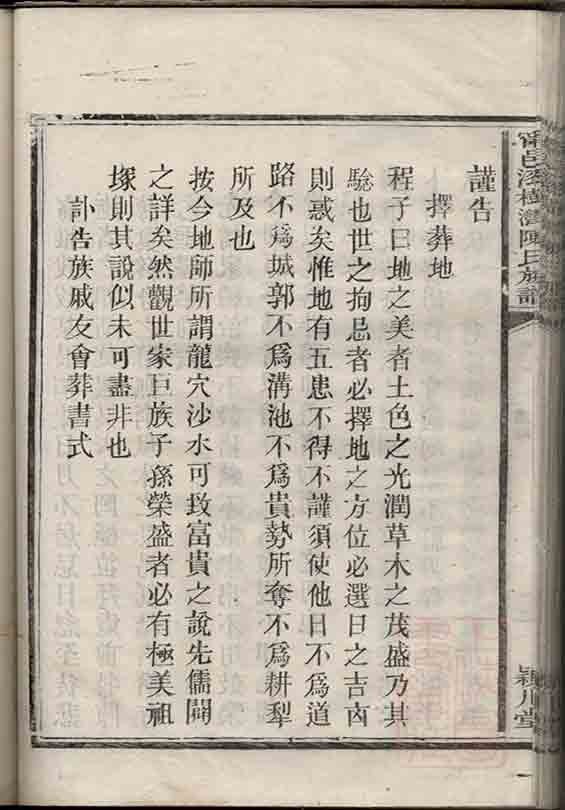 謹告
擇葬地
程子曰地之美者土色之光潤草木之茂盛乃其
騐也世之拘忌者必擇地之方位必選日之吉㐫
則惑矣惟地有五患不得不謹須使他日不爲道
路不爲城郭不爲溝池不爲貴勢所奪不爲耕犁
所及也
按今地師所謂龍穴沙水可致富貴之說先儒闢
之詳矣然觀世家巨族子孫榮盛者必有極美祖
塚則其說似未可盡非也
訃告族戚友會葬書式
甯邑陳氏族譜
潁川堂